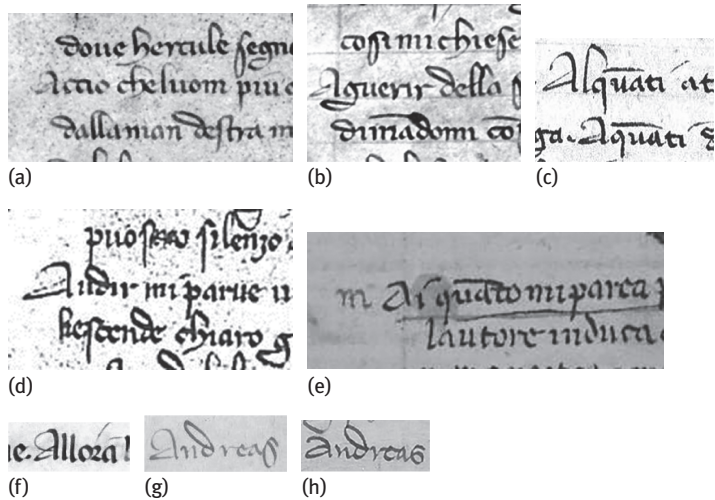 doue hercule segn
Actio cheluom piu
dallaman destra m
(a)
cosi mi chiese
Aguerir della s
dimādomi cō
(b)
Alquāti at
ga. Aquāti
(c)
silenzo
Audir mi parue u
scende chiaro g
(d)
m Ai quāto mi parea p
lautore induca
(e)
e. Allorā
(f)
Andreas
(g)
Andreas
(h)